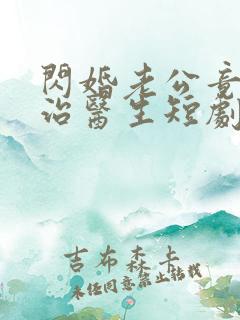 閃婚老公竟
治醫生短劇
吉布森卡
未經同意禁止轉載